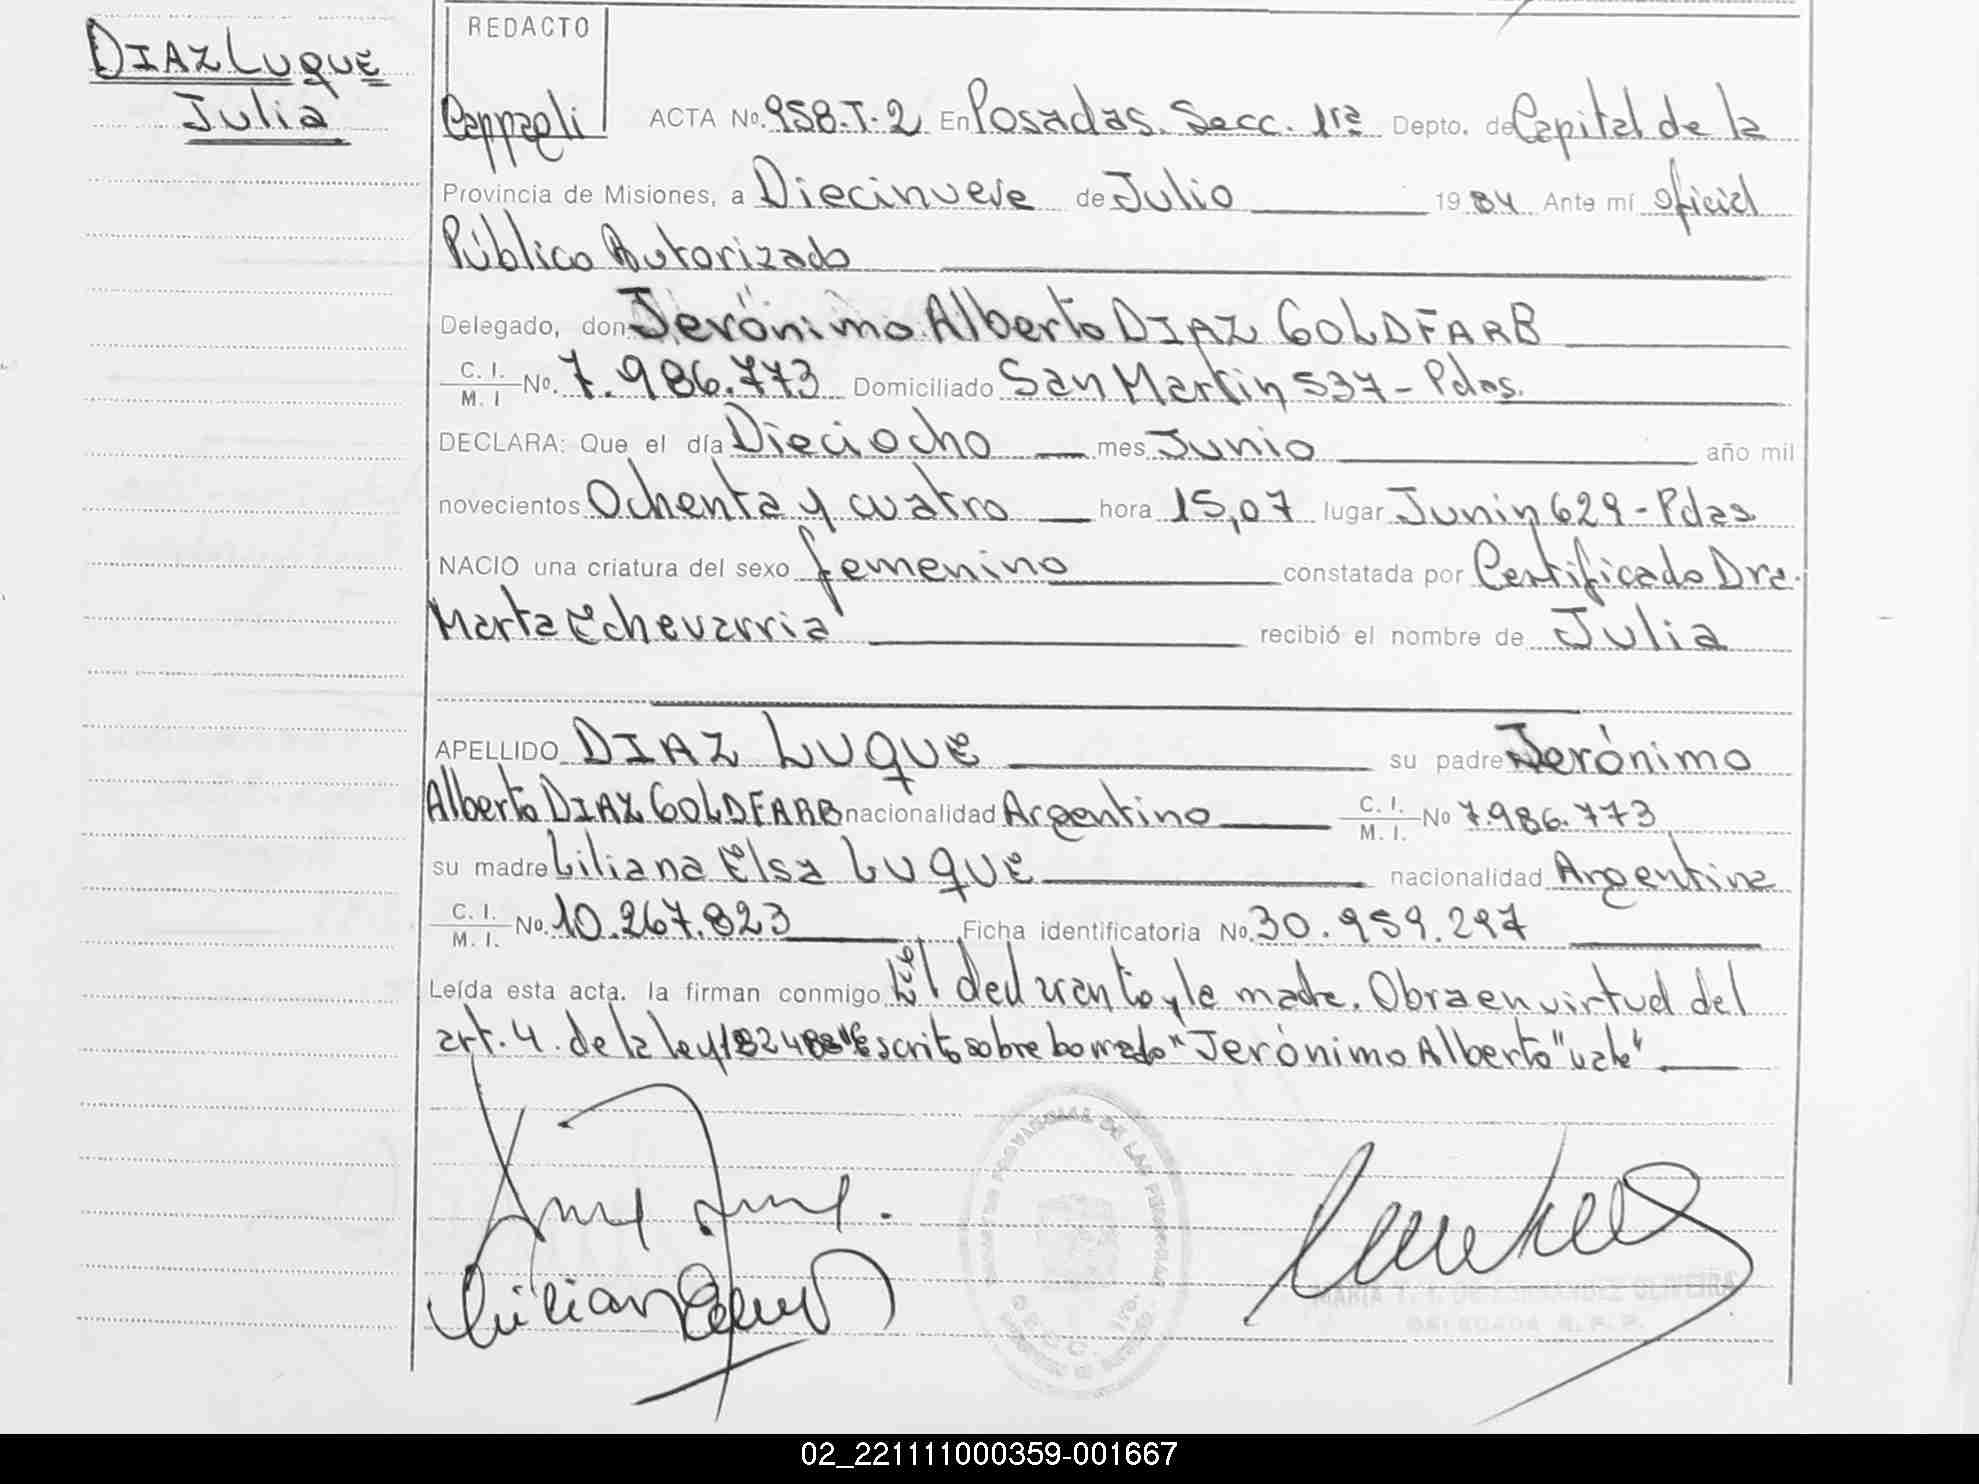 DIAZ LUQUE
Julia
REDACTO
Cappagli
ACTA No. 958-T-2 En Posadas. Secc. 1ra Depto. de Capital de la
Provincia de Misiones, a Diecinueve de Julio 1984 Ante mí oficial
Público Autorizado
Delegado, don Jerónimo Alberto DIAZ GOLDFARB
C. I. / M. I No. 7.986.773 Domiciliado San Martin 537 - Pdas.
DECLARA: Que el día Dieciocho mes Junio año mil
novecientos Ochenta y cuatro hora 15,07 lugar Junin 629 - Pdas
NACIO una criatura del sexo femenino constatada por Certificado Dra.
Marta Echevarria recibió el nombre de Julia
APELLIDO DIAZ LUQUE su padre Jerónimo
Alberto DIAZ GOLDFARB nacionalidad Argentino C. I. / M. I. No 7.986.773
su madre Liliana Elsa LUQUE nacionalidad Argentina
C. I. / M. I. No. 10.267.823 Ficha identificatoria No. 30.959.297
Leída esta acta. la firman conmigo El declarante y la madre. Obra en virtud del
art. 4. de la ley 18248 "Escrito sobre borrado" Jerónimo Alberto "vale"
DELEGADA R. P. P.
02_221111000359-001667